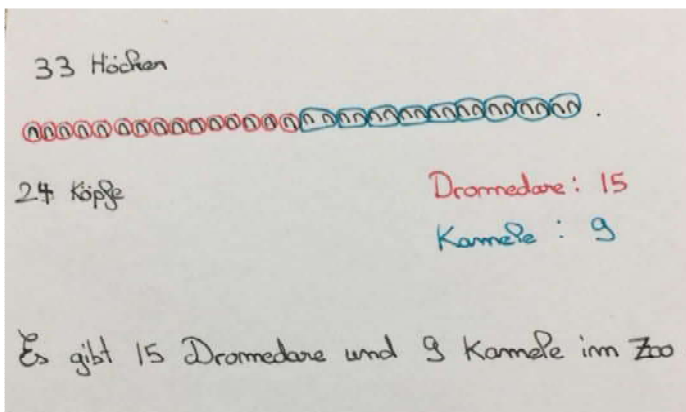 33 Höcken
24 Köpfe
Dromedare: 15
Kamele : 9
Es gibt 15 Dromedare und 9 Kamele im Zoo